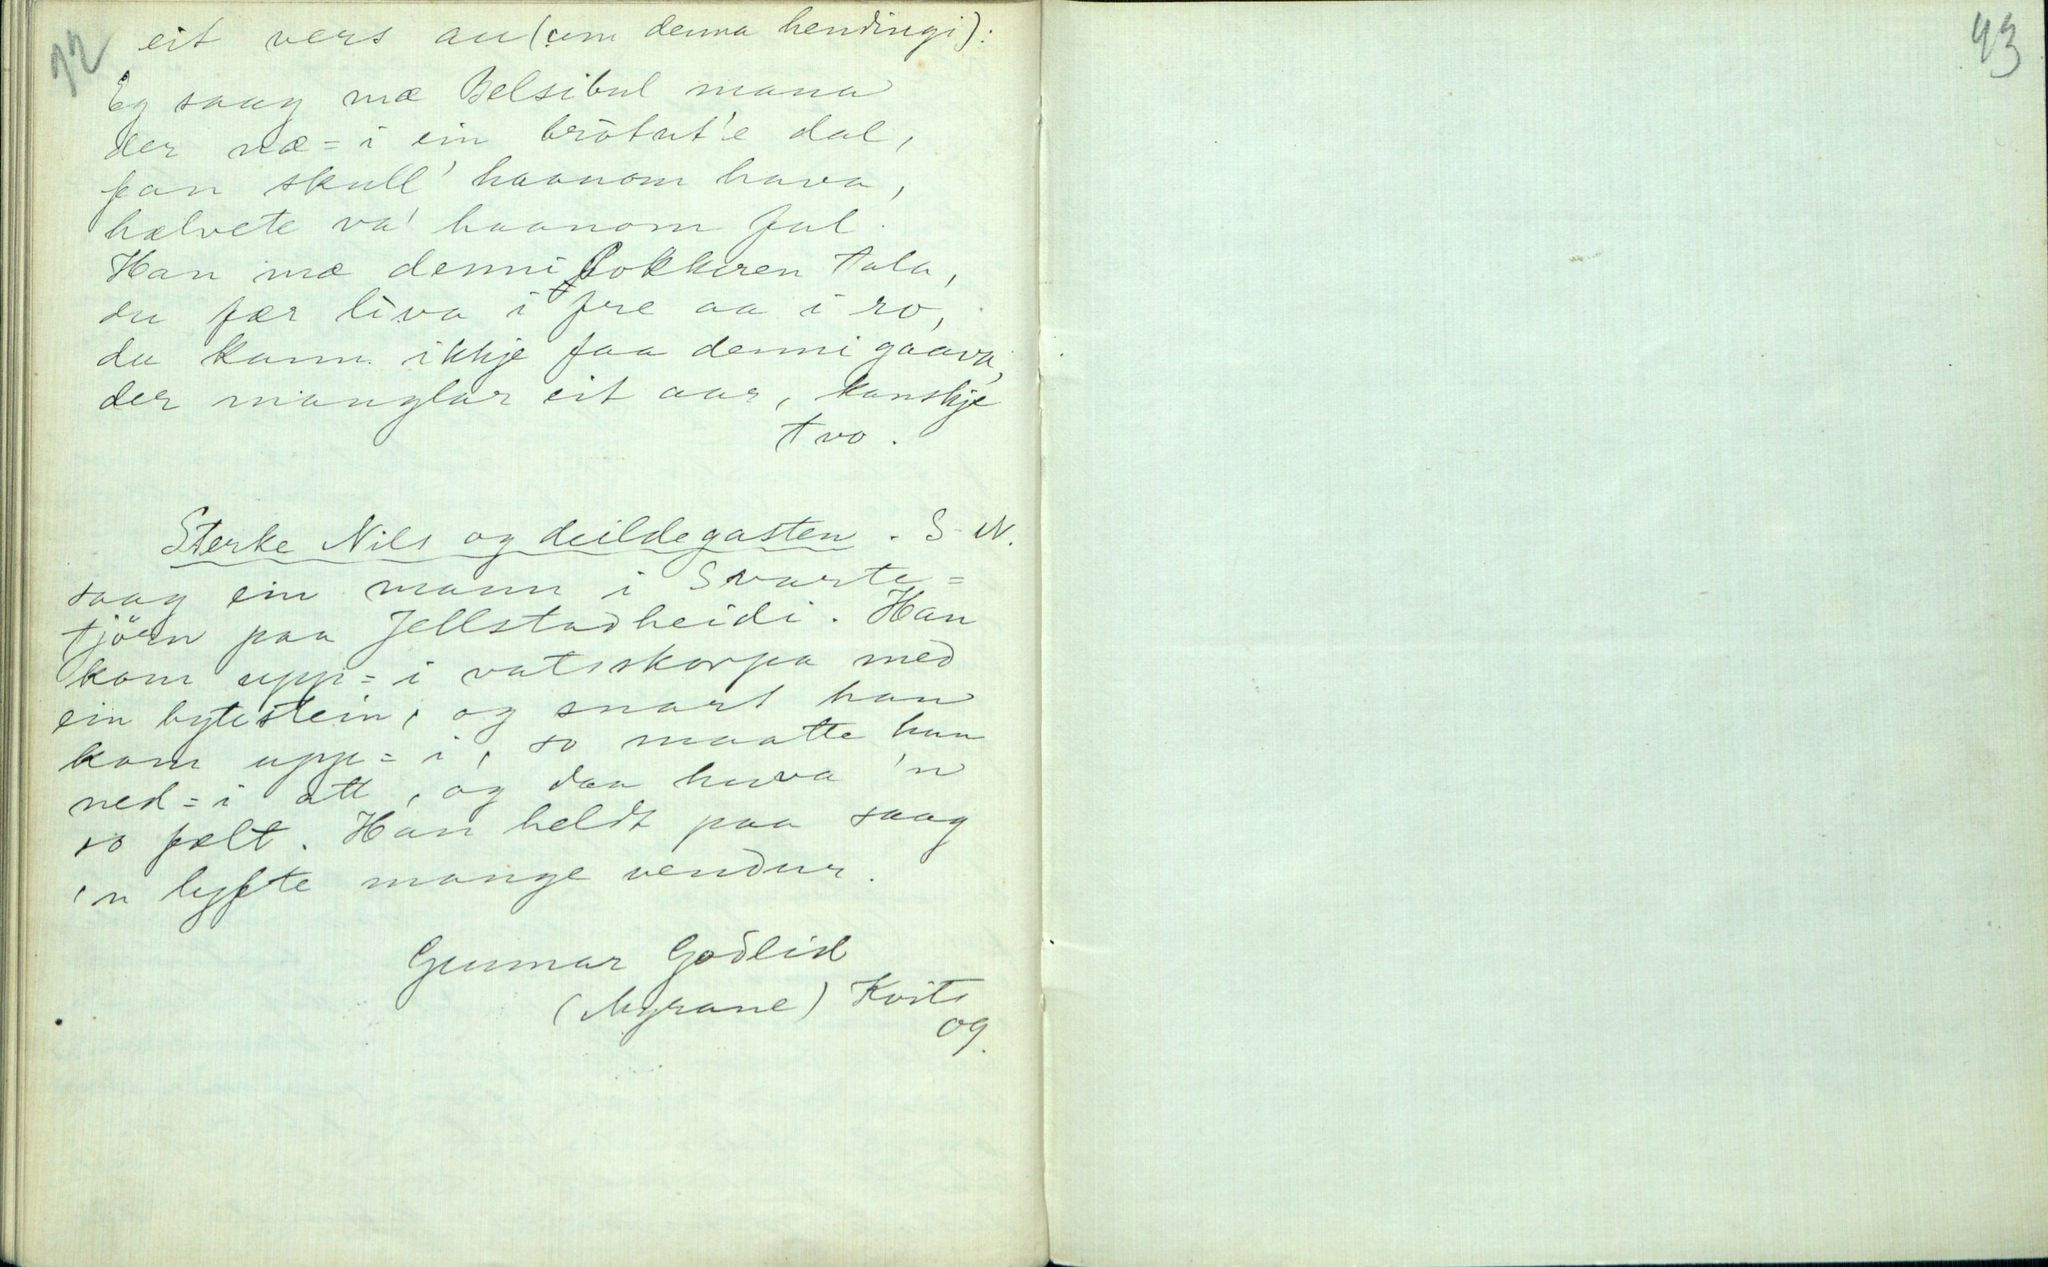 42
eit vers au (um denna hendingi):
Eg saag mæ Belsibul mana
der næ=i ein brötut'e dal,
fan skull' haanom hava,
hælvete va' haanom fal.
Han mæ denni Pokkeren tala,
du fær liva i fre aa i ro,
du kann ikkje faa denni gaava,
der manglar eit aar, kanskje
tvo.
Sterke Nils og deildegasten. S-N.
saag ein mann i Svarte=
tjörn paa Jellstadheidi. Han
kom upp=i vatsskorpa med
ein bytestein, og snart han
kom upp=i, so maatte han
ned=i att, og daa huva 'n
so fælt. Han heldt paa saag
'n lyfte mange vendur.
Gunnar Godlid
(Myrane) Kvits
og.
43